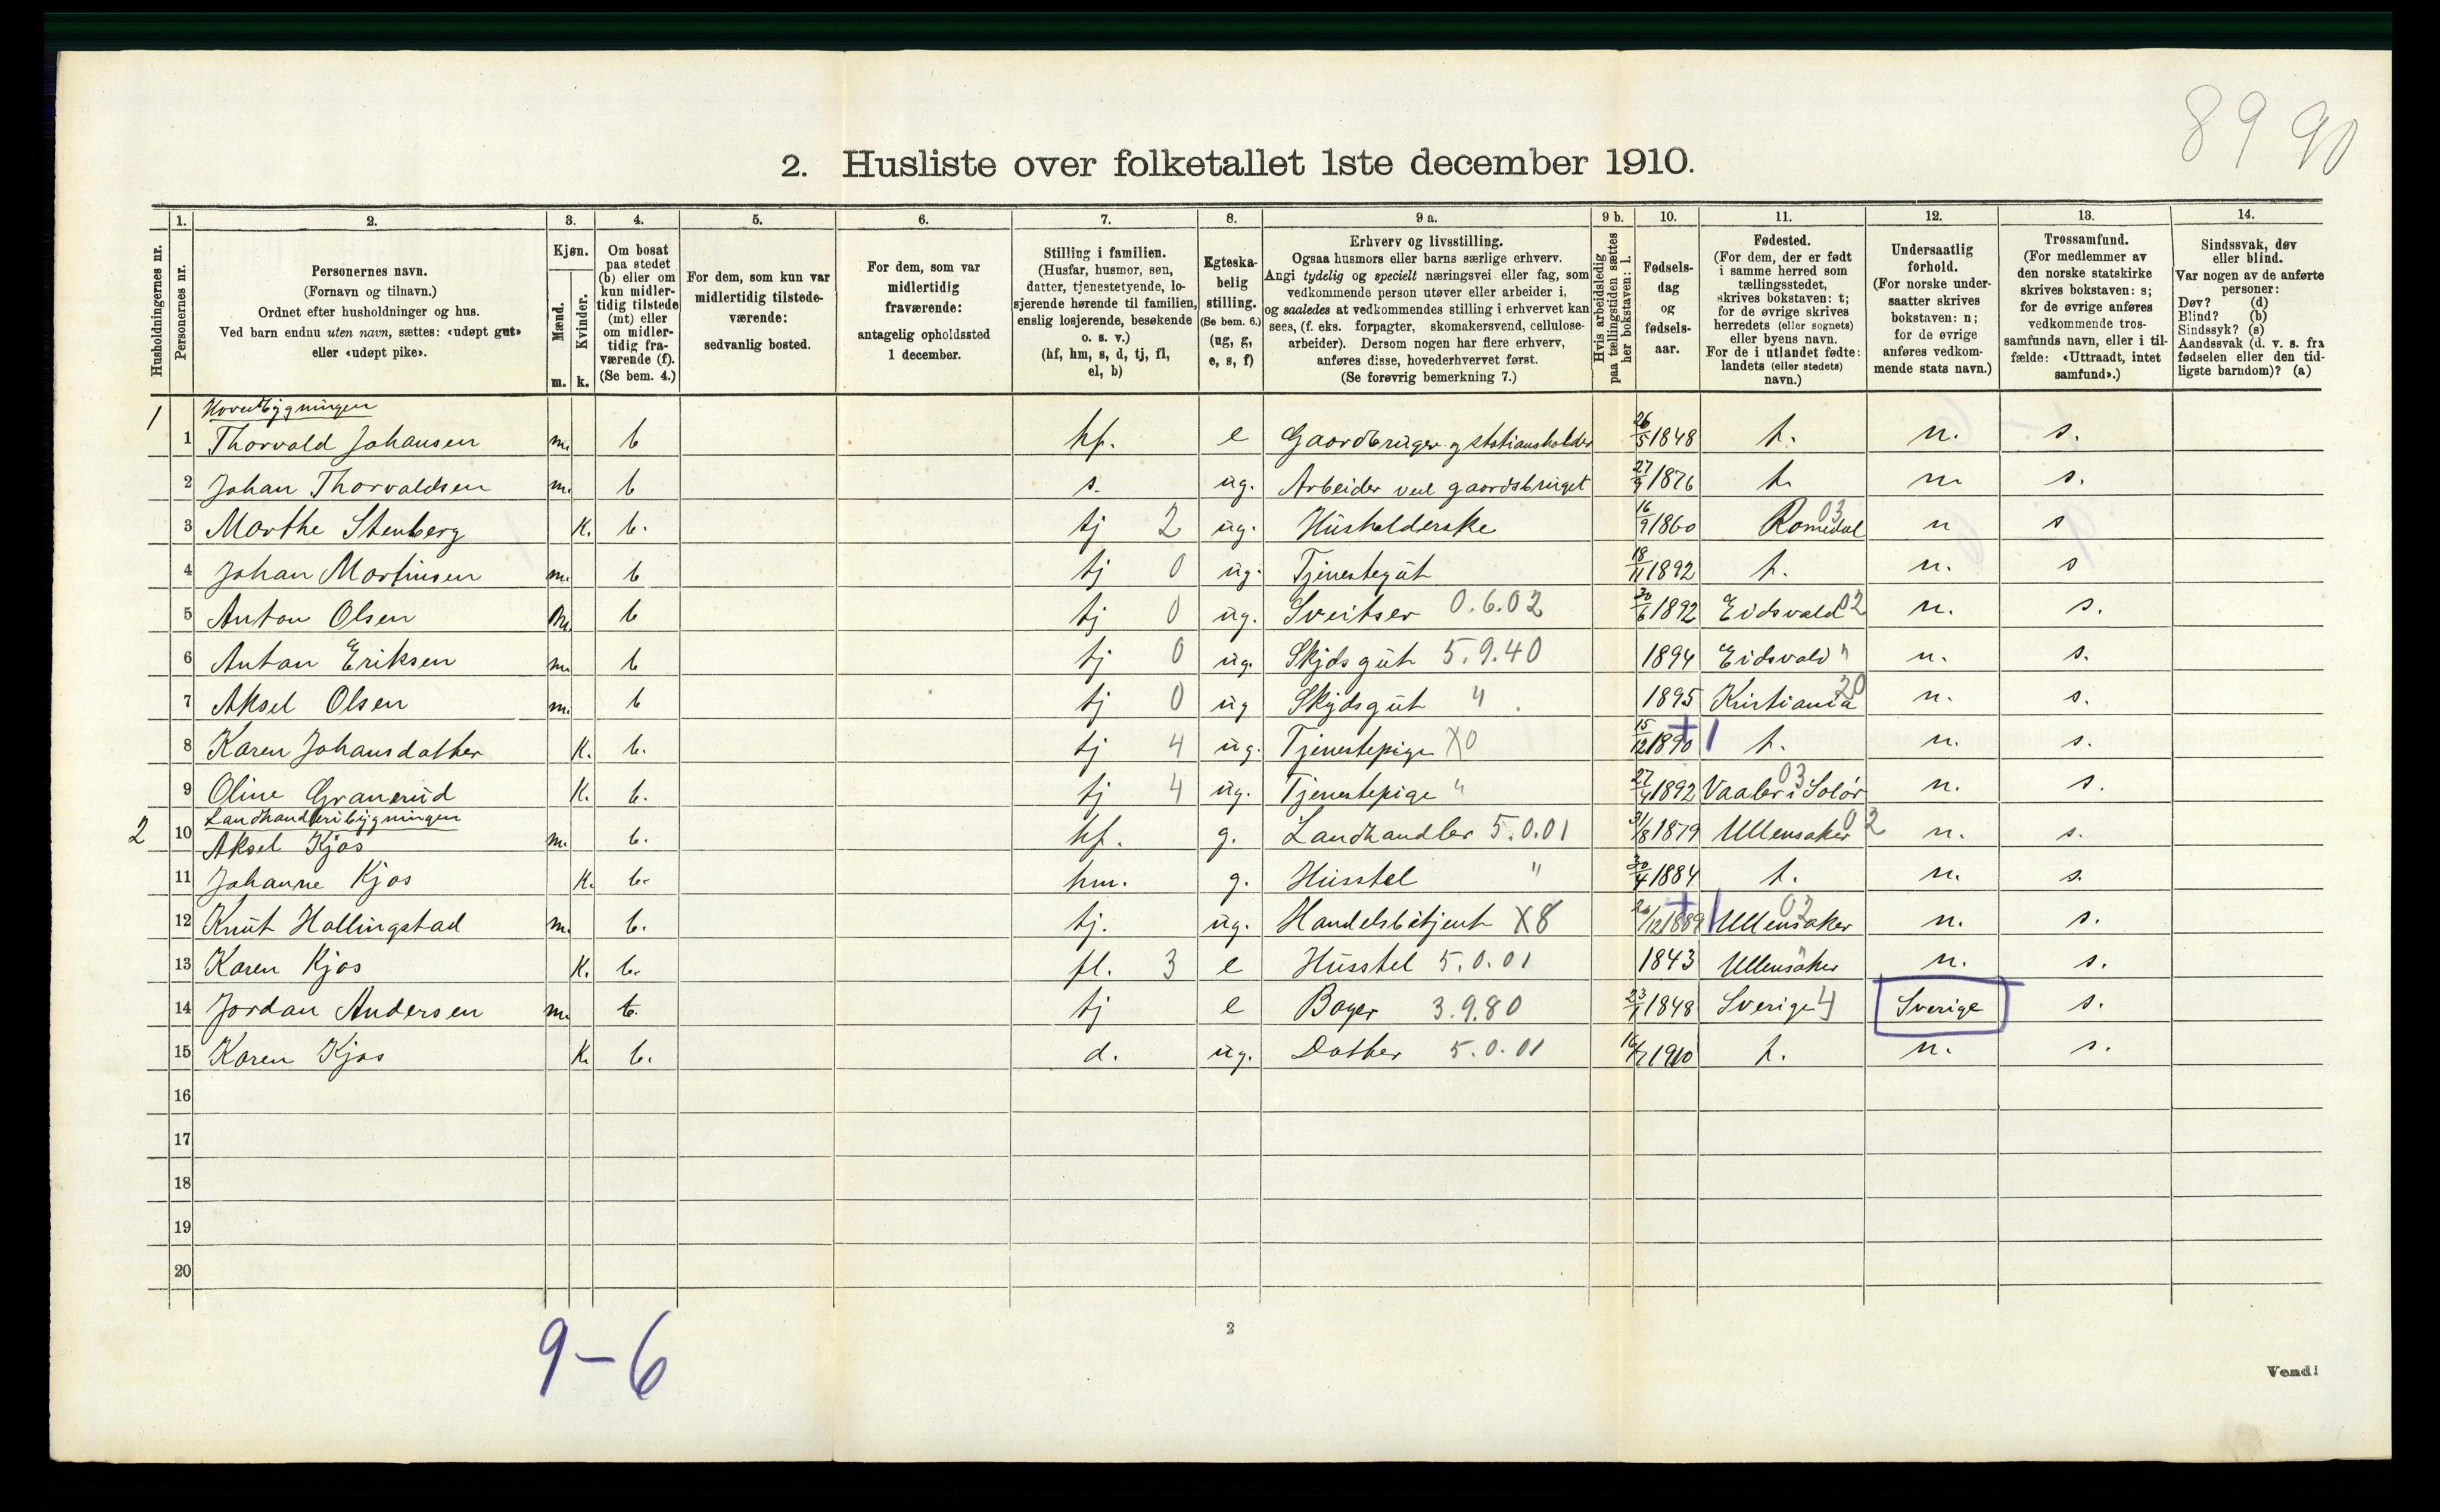 89 90
2. Husliste over folketallet 1ste december 1910.
1. 2. 3. 4. 5. 6. 7. 8. 9 a. 9 b. 10. 11. 12. 13. 14.
Husholdningernes nr.
Personernes nr.
Personernes navn.
(Fornavn og tilnavn.)
Ordnet efter husholdninger og hus.
Ved barn endnu uten navn, sættes: «udøpt gut»
eller «udøpt pike».
Kjøn.
Mænd.
Kvinder.
m. k.
Om bosat
paa stedet
(b) eller om
kun midler-
tidig tilstede
(mt) eller
om midler-
tidig fra-
værende (f).
(Se bem. 4.)
For dem, som kun var
midlertidig tilstede-
værende:
sedvanlig bosted.
For dem, som var
midlertidig
fraværende:
antagelig opholdssted
1 december.
Stilling i familien.
(Husfar, husmor, søn,
datter, tjenestetyende, lo-
sjerende hørende til familien,
enslig losjerende, besøkende
o. s. v.)
(hf, hm, s, d, tj, fl,
el, b)
Egteska-
belig
stilling.
(Se bem. 6.)
(ug, g,
e, s, f)
Erhverv og livsstilling.
Ogsaa husmors eller barns særlige erhverv.
Angi tydelig og specielt næringsvei eller fag, som
vedkommende person utøver eller arbeider i,
og saaledes at vedkommendes stilling i erhvervet kan
sees, (f. eks. forpagter, skomakersvend, cellulose-
arbeider). Dersom nogen har flere erhverv,
anføres disse, hovederhvervet først.
(Se forøvrig bemerkning 7.)
Hvis arbeidsledig
paa tællingstiden sættes
her bokstaven: l.
Fødsels-
dag
og
fødsels-
aar.
Fødested.
(For dem, der er født
i samme herred som
tællingsstedet,
skrives bokstaven: t;
for de øvrige skrives
herredets (eller sognets)
eller byens navn.
For de i utlandet fødte:
landets (eller stedets)
navn.)
Undersaatlig
forhold.
(For norske under-
saatter skrives
bokstaven: n;
for de øvrige
anføres vedkom-
mende stats navn.)
Trossamfund.
(For medlemmer av
den norske statskirke
skrives bokstaven: s;
for de øvrige anføres
vedkommende tros-
samfunds navn, eller i til-
fælde: «Uttraadt, intet
samfund».)
Sindssvak, døv
eller blind.
Var nogen av de anførte
personer:
Døv? (d)
Blind? (b)
Sindssyk? (s)
Aandssvak (d. v. s. fra
fødselen eller den tid-
ligste barndom)? (a)
Hovedbygningen
1 1 Thorvald Johansen m. b hf. e Gaardbruger og stationsholder 26/5 1848 t. n. s.
2 Johan Thorvaldsen m. b s. ug. Arbeider ved gaardsbruget 27/9 1876 t. n s.
3 Marthe Stenberg K. b. tj 2 ug. Husholderske 16/9 1860 Romedal 03 n s
4 Johan Martinsen m. b tj 0 ug. Tjenestegut 18/11 1892 t. n. s
5 Anton Olsen m. b tj 0 ug. Sveitser 0.6.02 30/6 1892 Eidsvald 02 n. s.
6 Anton Eriksen m. b tj 0 ug. Skjdsgut 5.9.40 1894 Eidsvald " n. s.
7 Aksel Olsen m. b tj 0 ug Skydsgut " 1895 Kristiania 20 n. s.
8 Karen Johansdatter K. b. tj 4 ug. Tjenestepige X0 15/12 1890 +1 t. n. s.
9 Oline Granerud K. b. tj 4 ug. Tjenestepige " 27/4 1892 Vaaler i Solør 03 n. s.
Landhandleribygningen
2 10 Aksel Kjos m. b. hf. g. Landhandler 5.0.01 31/8 1879 Ullensaker 02 n. s.
11 Johanne Kjos K. b. hm. g. Husstel " 30/4 1884 t. n. s.
12 Knut Hallingstad m. b. tj. ug. Handelsbetjent X8 26/12 1889 +1 Ullensaker 02 n. s.
13 Karen Kjos K. b. fl. 3 e Husstel 5.0.01 1843 Ullensaker " n. s.
14 Jordan Andersen m. b. tj e Bager 3.9.80 23/1 1848 Sverige 4 Sverige s.
15 Karen Kjos K. b. d. ug. Datter 5.0.01 16/7 1910 t. n. s.
16
17
18
19
20
9-6
2
Vend!